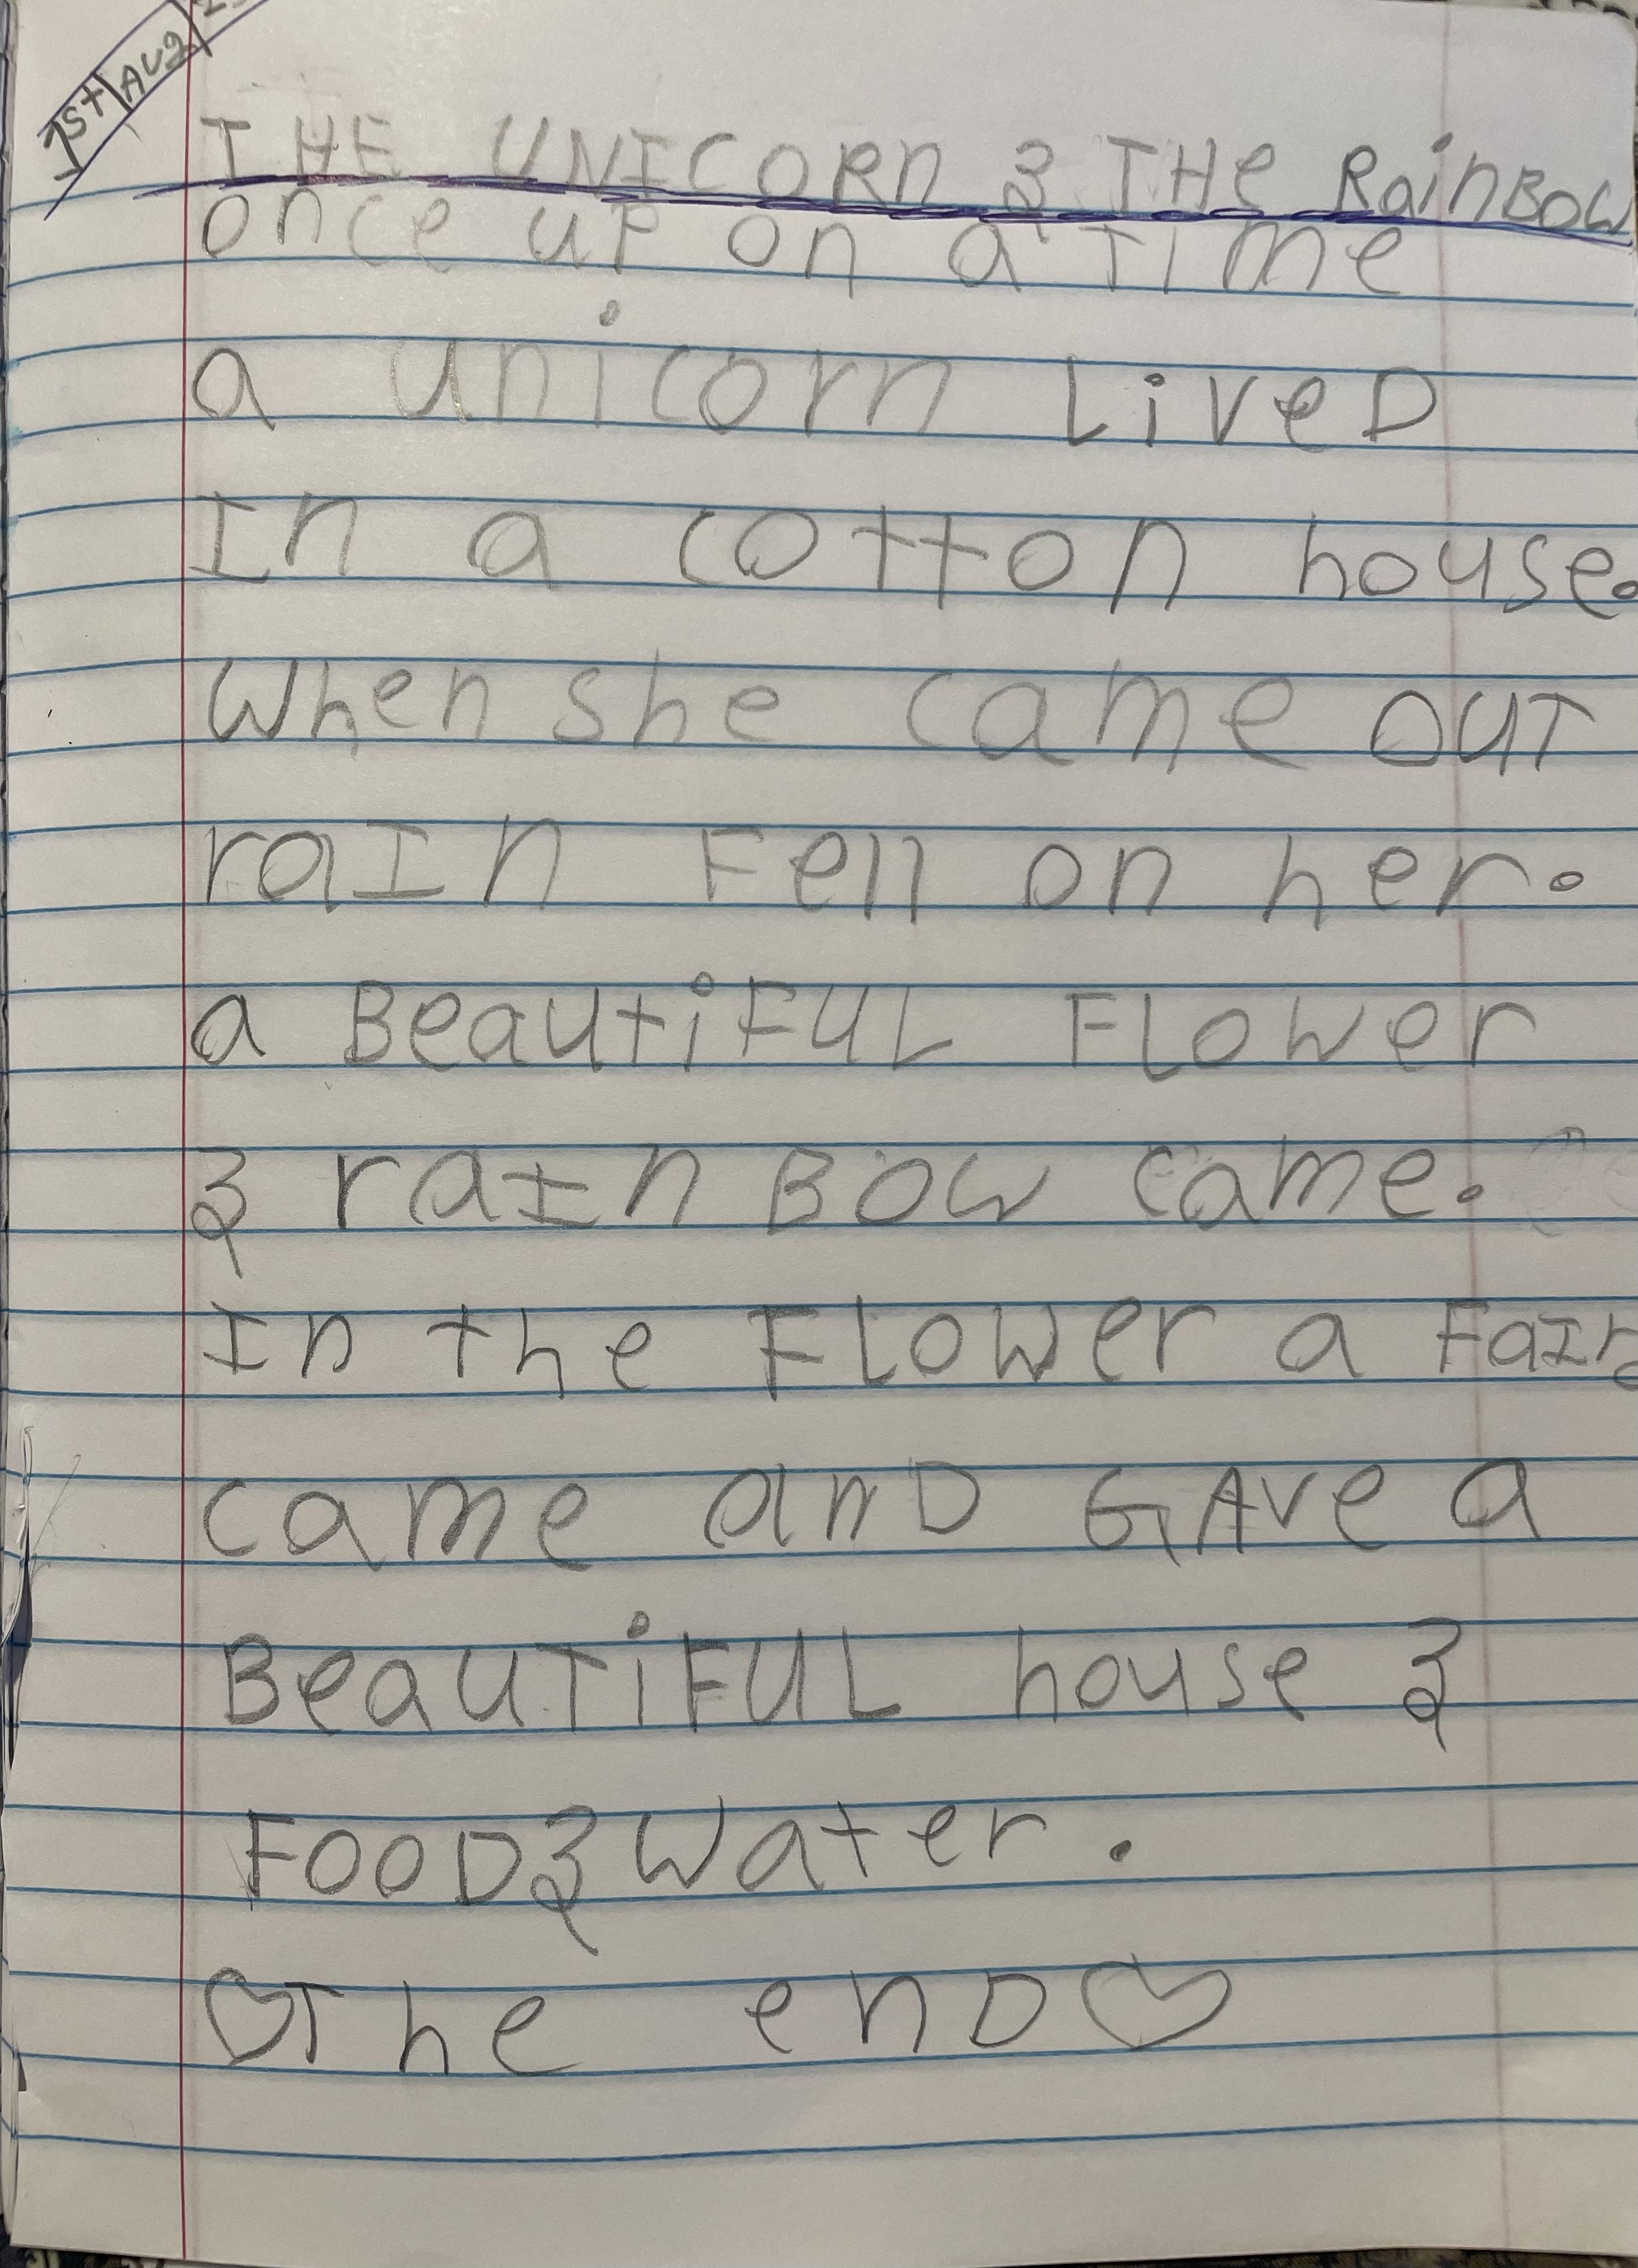 1st Aug
THE UNICORn & THe RainBOW
once uP on a TIme
a unicorn LiveD
In a cotton house.
When she came OUT
raIn Fell on her.
a BeautiFUL FLower
& raIn BOW came.
In the FLOWer a FaIry
came anD GAve a
BeauTiFUL house &
FOOD & Water.
♡The enD♡